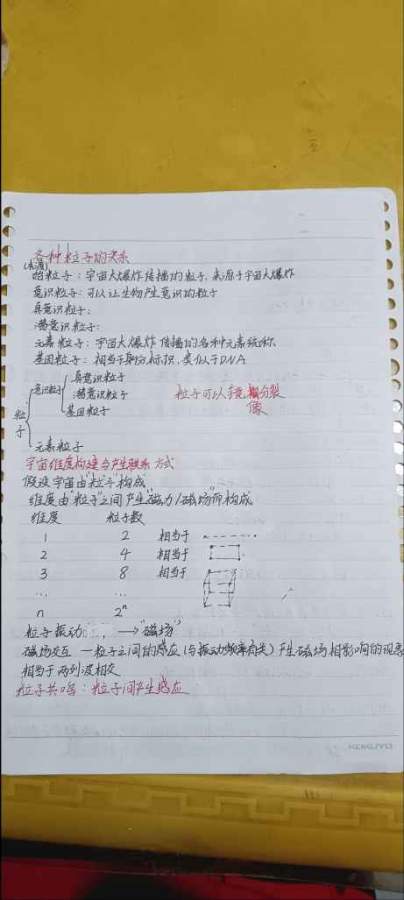 各种粒子的关系
(起源)
粒子：宇宙大爆炸传播的粒子，来源于宇宙大爆炸
意识粒子：可以让生物产生意识的粒子
真意识粒子：
潜意识粒子：
元素粒子：宇宙大爆炸传播的各种元素统称
基因粒子：相当于身份标识，类似于DNA
真意识粒子
意识粒子 潜意识粒子 粒子可以镜像分裂
基因粒子
粒子
元素粒子
宇宙维度构建与产生联系方式
假设宇宙由"粒子"构成
维度由"粒子"之间产生磁力/磁场所构成
维度 粒子数
1 2 相当于
2 4 相当于
3 8 相当于
... ...
n 2ⁿ
粒子振动 → "磁场"
磁场交互—粒子之间的感应(与振动频率有关)产生磁场相影响的现象
相当于两列波相交
粒子共鸣：粒子间产生感应